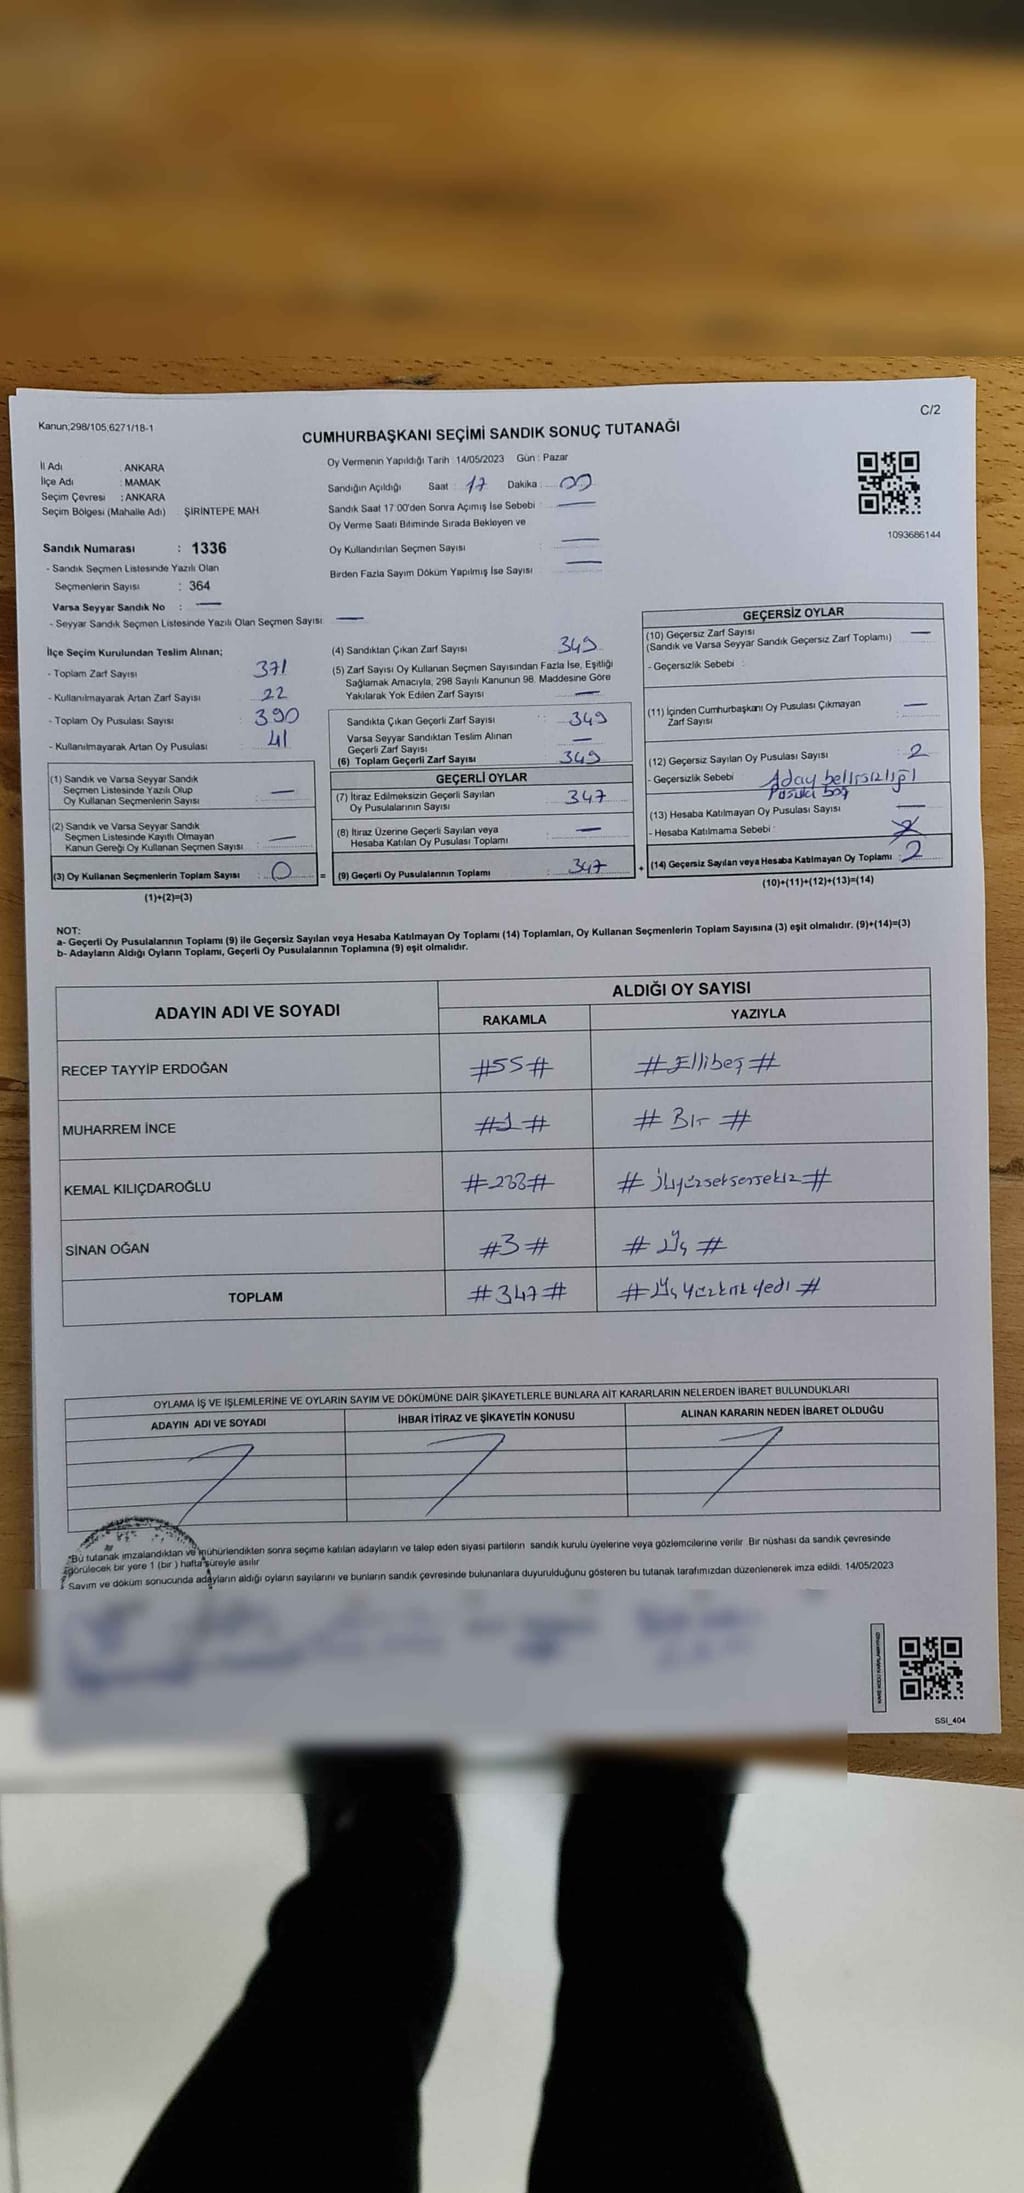 Kanun;298/105,6271/18-1
C/2
CUMHURBAŞKANI SEÇİMİ SANDIK SONUÇ TUTANAĞI
İl Adı : ANKARA
İlçe Adı : MAMAK
Seçim Çevresi : ANKARA
Seçim Bölgesi (Mahalle Adı) : ŞİRİNTEPE MAH.
Oy Vermenin Yapıldığı Tarih :14/05/2023 Gün : Pazar
Sandığın Açıldığı Saat : 17 Dakika : 00
Sandık Saat 17:00'den Sonra Açımış İse Sebebi : —
Oy Verme Saati Bitiminde Sırada Bekleyen ve
Oy Kullandırılan Seçmen Sayısı : —
Birden Fazla Sayım Döküm Yapılmış İse Sayısı : —
1093686144
Sandık Numarası : 1336
- Sandık Seçmen Listesinde Yazılı Olan
Seçmenlerin Sayısı : 364
Varsa Seyyar Sandık No : —
- Seyyar Sandık Seçmen Listesinde Yazılı Olan Seçmen Sayısı: —
İlçe Seçim Kurulundan Teslim Alınan;
- Toplam Zarf Sayısı 371
- Kullanılmayarak Artan Zarf Sayısı 22
- Toplam Oy Pusulası Sayısı 390
- Kullanılmayarak Artan Oy Pusulası 41
(1) Sandık ve Varsa Seyyar Sandık
Seçmen Listesinde Yazılı Olup
Oy Kullanan Seçmenlerin Sayısı : —
(2) Sandık ve Varsa Seyyar Sandık
Seçmen Listesinde Kayıtlı Olmayan
Kanun Gereği Oy Kullanan Seçmen Sayısı : —
(3) Oy Kullanan Seçmenlerin Toplam Sayısı : 0 =
(1)+(2)=(3)
(4) Sandıktan Çıkan Zarf Sayısı 349
(5) Zarf Sayısı Oy Kullanan Seçmen Sayısından Fazla İse, Eşitliği
Sağlamak Amacıyla, 298 Sayılı Kanunun 98. Maddesine Göre
Yakılarak Yok Edilen Zarf Sayısı —
Sandıkta Çıkan Geçerli Zarf Sayısı : 349
Varsa Seyyar Sandıktan Teslim Alınan
Geçerli Zarf Sayısı —
(6) Toplam Geçerli Zarf Sayısı 349
GEÇERLİ OYLAR
(7) İtiraz Edilmeksizin Geçerli Sayılan
Oy Pusulalarının Sayısı : 347
(8) İtiraz Üzerine Geçerli Sayılan veya
Hesaba Katılan Oy Pusulası Toplamı —
(9) Geçerli Oy Pusulalarının Toplamı : 347 +
GEÇERSİZ OYLAR
(10) Geçersiz Zarf Sayısı
(Sandık ve Varsa Seyyar Sandık Geçersiz Zarf Toplamı) : —
- Geçersizlik Sebebi :
(11) İçinden Cumhurbaşkanı Oy Pusulası Çıkmayan
Zarf Sayısı —
(12) Geçersiz Sayılan Oy Pusulası Sayısı 2
- Geçersizlik Sebebi : Aday belirsizliği
Pusula boş
(13) Hesaba Katılmayan Oy Pusulası Sayısı —
- Hesaba Katılmama Sebebi :
(14) Geçersiz Sayılan veya Hesaba Katılmayan Oy Toplamı : 2
(10)+(11)+(12)+(13)=(14)
NOT:
a- Geçerli Oy Pusulalarının Toplamı (9) ile Geçersiz Sayılan veya Hesaba Katılmayan Oy Toplamı (14) Toplamları, Oy Kullanan Seçmenlerin Toplam Sayısına (3) eşit olmalıdır. (9)+(14)=(3)
b- Adayların Aldığı Oyların Toplamı, Geçerli Oy Pusulalarının Toplamına (9) eşit olmalıdır.
ADAYIN ADI VE SOYADI ALDIĞI OY SAYISI
RAKAMLA YAZIYLA
RECEP TAYYİP ERDOĞAN #55# #Ellibeş#
MUHARREM İNCE #1# # Bir #
KEMAL KILIÇDAROĞLU #288# # İkiyüzseksensekiz #
SİNAN OĞAN #3# # Üç #
TOPLAM #347# # Üç yüzkırk yedi #
OYLAMA İŞ VE İŞLEMLERİNE VE OYLARIN SAYIM VE DÖKÜMÜNE DAİR ŞİKAYETLERLE BUNLARA AİT KARARLARIN NELERDEN İBARET BULUNDUKLARI
ADAYIN ADI VE SOYADI İHBAR İTİRAZ VE ŞİKAYETİN KONUSU ALINAN KARARIN NEDEN İBARET OLDUĞU
*Bu tutanak imzalandıktan ve mühürlendikten sonra seçime katılan adayların ve talep eden siyasi partilerin sandık kurulu üyelerine veya gözlemcilerine verilir. Bir nüshası da sandık çevresinde
görülecek bir yere 1 (bir ) hafta süreyle asılır.
Sayım ve döküm sonucunda adayların aldığı oyların sayılarını ve bunların sandık çevresinde bulunanlara duyurulduğunu gösteren bu tutanak tarafımızdan düzenlenerek imza edildi. 14/05/2023
SSI_404